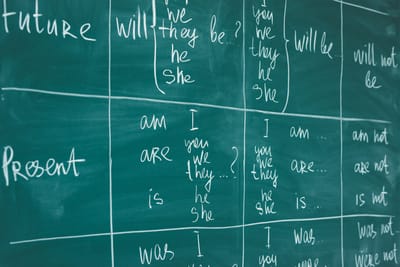 Future
will
we
they
he
she
be..?
you
we
they
he
she
will be...
will not
be
Present
am I
are you
we
they ...?
is he
she
I am ...
you
we
they are...
he
she is ..
am not
are not
is not
was I
I was...
you
was not
were not